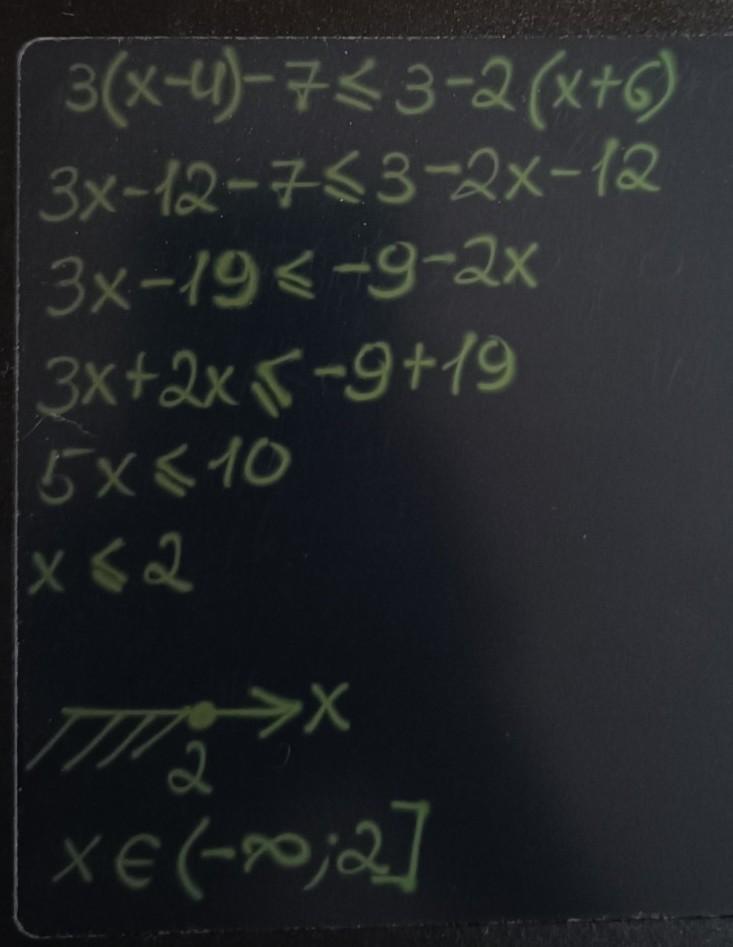 3(x-4)-7≤3-2(x+6)
3x-12-7≤3-2x-12
3x-19≤-9-2x
3x+2x≤-9+19
5x≤10
x≤2
x
2
x∈(-∞;2]